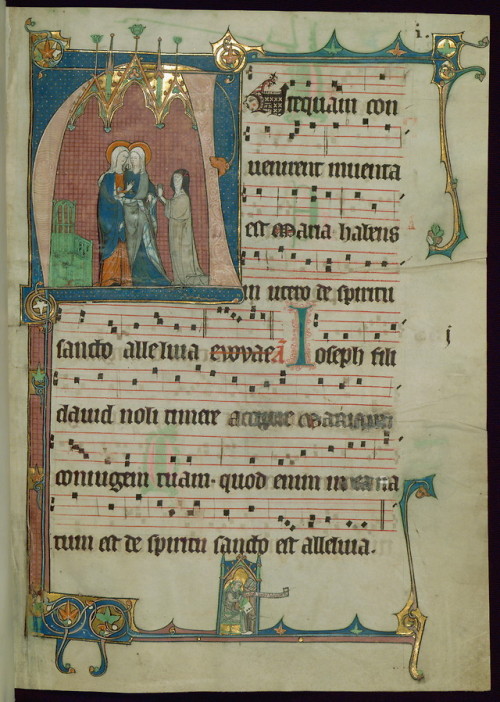 i.
Antequam con
uenirent inuenta
est Maria habens
in utero de spiritu
sancto alleluia euouae a Ioseph fili
i
dauid noli timere accipere Mariam
coniugem tuam. quod enim in ea na
tum est de spiritu sancto est alleluia.